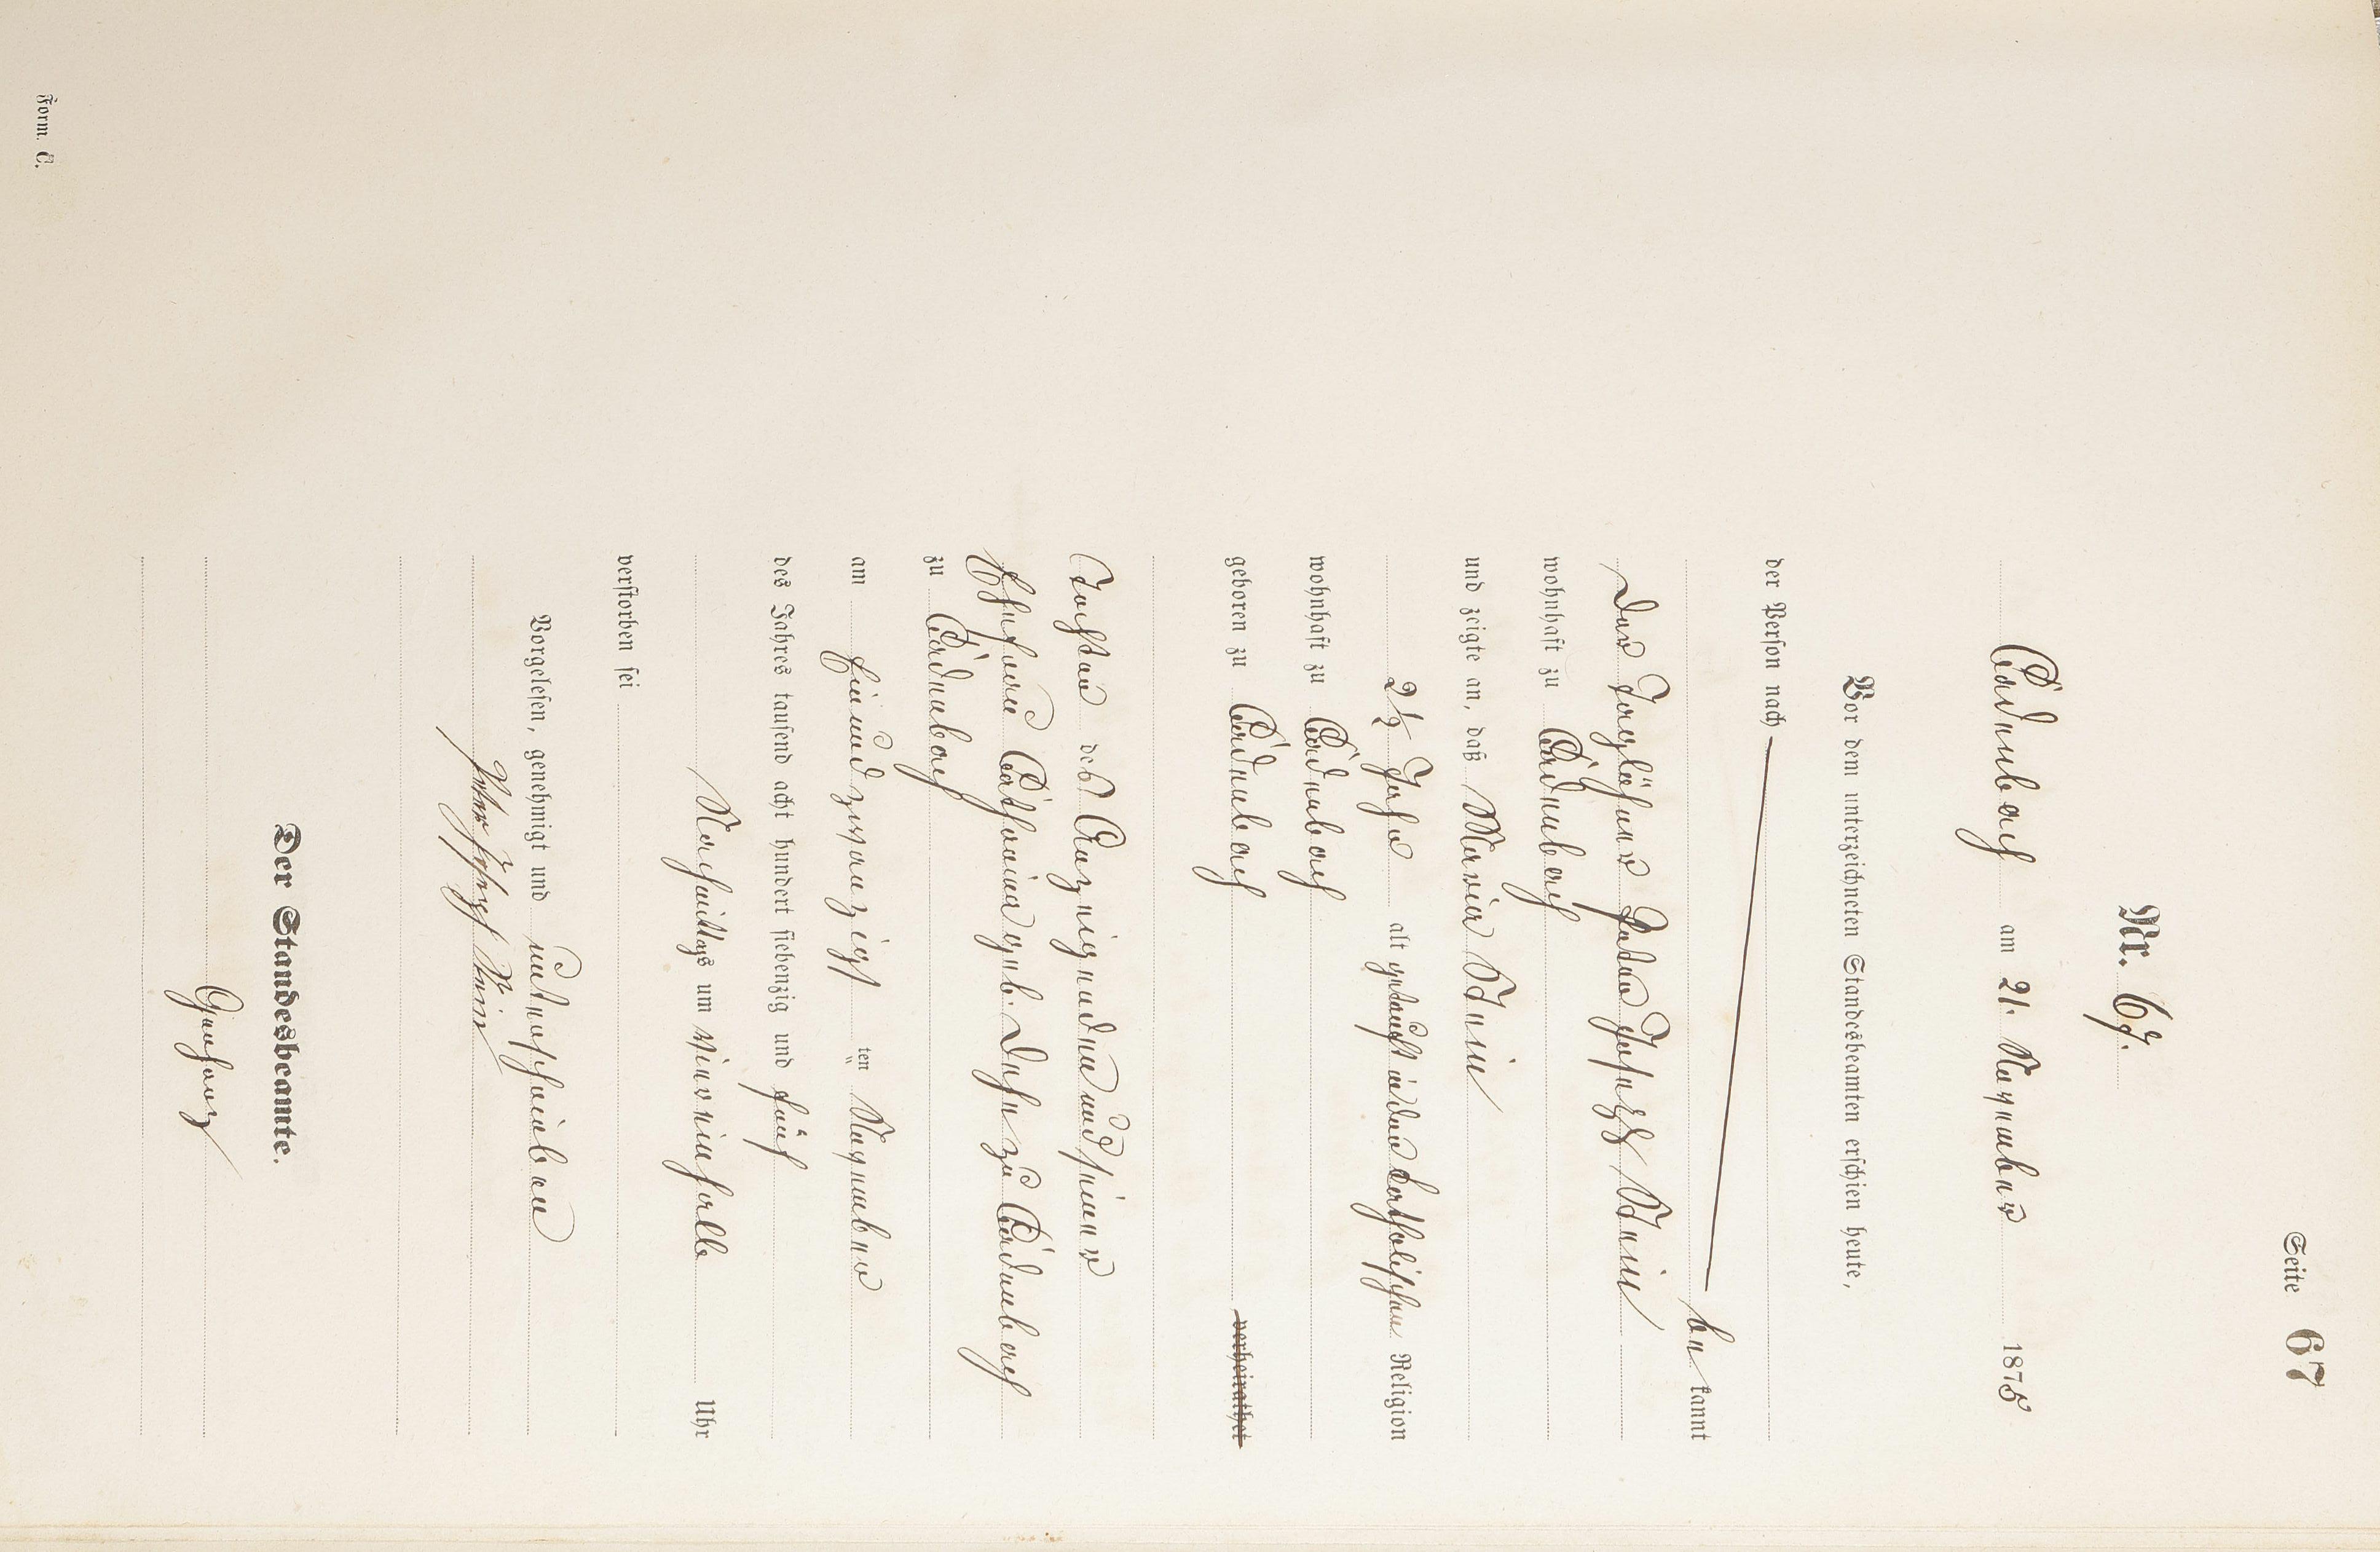 Seite 67
Nr. 67.
Cadenbach am 21. November 1875
Vor dem unterzeichneten Standesbeamten erschien heute,
der Person nach
be kannt
der Taglöhner Peter Joseph Stein
wohnhaft zu Cadenbach
und zeigte an, daß Maria Stein
2½ Jahr alt getauft in der katholischen Religion
wohnhaft zu Cadenbach
geboren zu Cadenbach verheirathet
Tochter des Anzeigenden und seiner
Ehefrau Catharina geb. Dehe zu Cadenbach
zu Cadenbach
am Einundzwanzigst ten November
des Jahres tausend acht hundert siebenzig und fünf
Nachmittags um vier einhalb Uhr
verstorben sei
Vorgelesen, genehmigt und unterschrieben
Peter Joseph Stein
Der Standesbeamte.
Form. C.